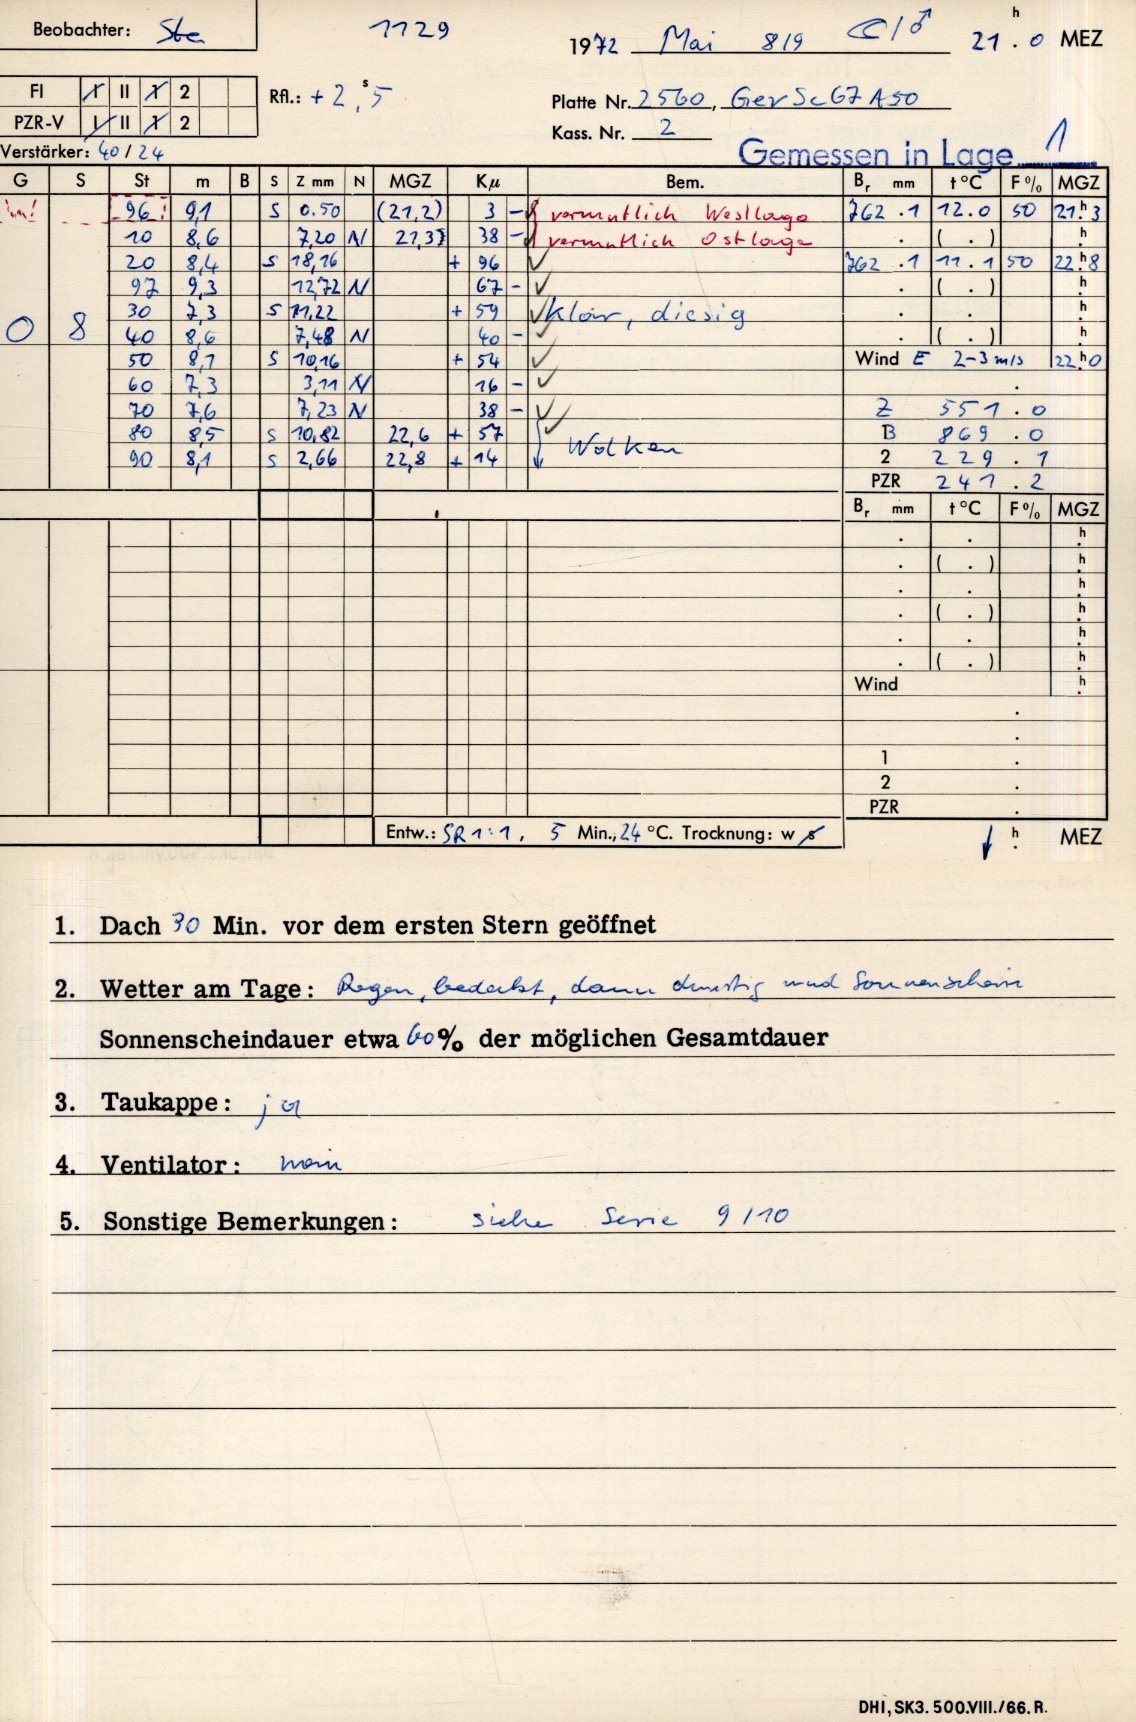 Beobachter: Ste 1129
1972 Mai 8/9 ☾/♂ 21 h . 0 MEZ
FI I II 1 2
PZR-V I II 1 2
Rfl.: +2 s ,5
Platte Nr. 2560, Gev Sc 67 A 50
Kass. Nr. 2
Verstärker: 40/24
Gemessen in Lage 1
G S St m B S Z mm N MGZ Kμ Bem. Br mm t °C F % MGZ
96 9,1 S 0.50 (21,2) 3 – vermutlich Westlage 762 .1 12.0 50 21 h. 3
10 8,6 7,20 N 21,3 38 – vermutlich Ostlage . ( . ) h.
20 8,4 S 18,16 + 96 ✓ 762 .1 11.1 50 22 h. 8
97 9,3 12,72 N 67 – ✓ . ( . ) h.
0 8 30 7,3 S 11,22 + 59 ✓ klar, diesig . . h.
40 8,6 7,48 N 40 – ✓ ( . ) h.
50 8,1 S 10,16 + 54 ✓ Wind E 2–3 m/s 22 h. 0
60 7,3 3,11 N 16 – ✓ .
70 7,6 7,23 N 38 – ✓ Z 551 . 0
80 8,5 S 10,82 22,6 + 57 ✓ Wolken B 869 . 0
90 8,1 S 2,66 22,8 + 14 2 229 . 1
PZR 241 . 2
Br mm t °C F % MGZ
. . h.
. ( . ) h.
. . h.
. ( . ) h.
. . h.
. ( . ) h.
Wind h.
.
.
1 .
2 .
PZR .
Entw.: SR 1:1, 5 Min., 24 °C. Trocknung: w s h . MEZ
1. Dach 30 Min. vor dem ersten Stern geöffnet
2. Wetter am Tage: Regen, bedeckt, dann dunstig und Sonnenschein
Sonnenscheindauer etwa 60% der möglichen Gesamtdauer
3. Taukappe: ja
4. Ventilator: nein
5. Sonstige Bemerkungen: siehe Serie 9/10
DHI, SK3. 500.VIII./66. R.